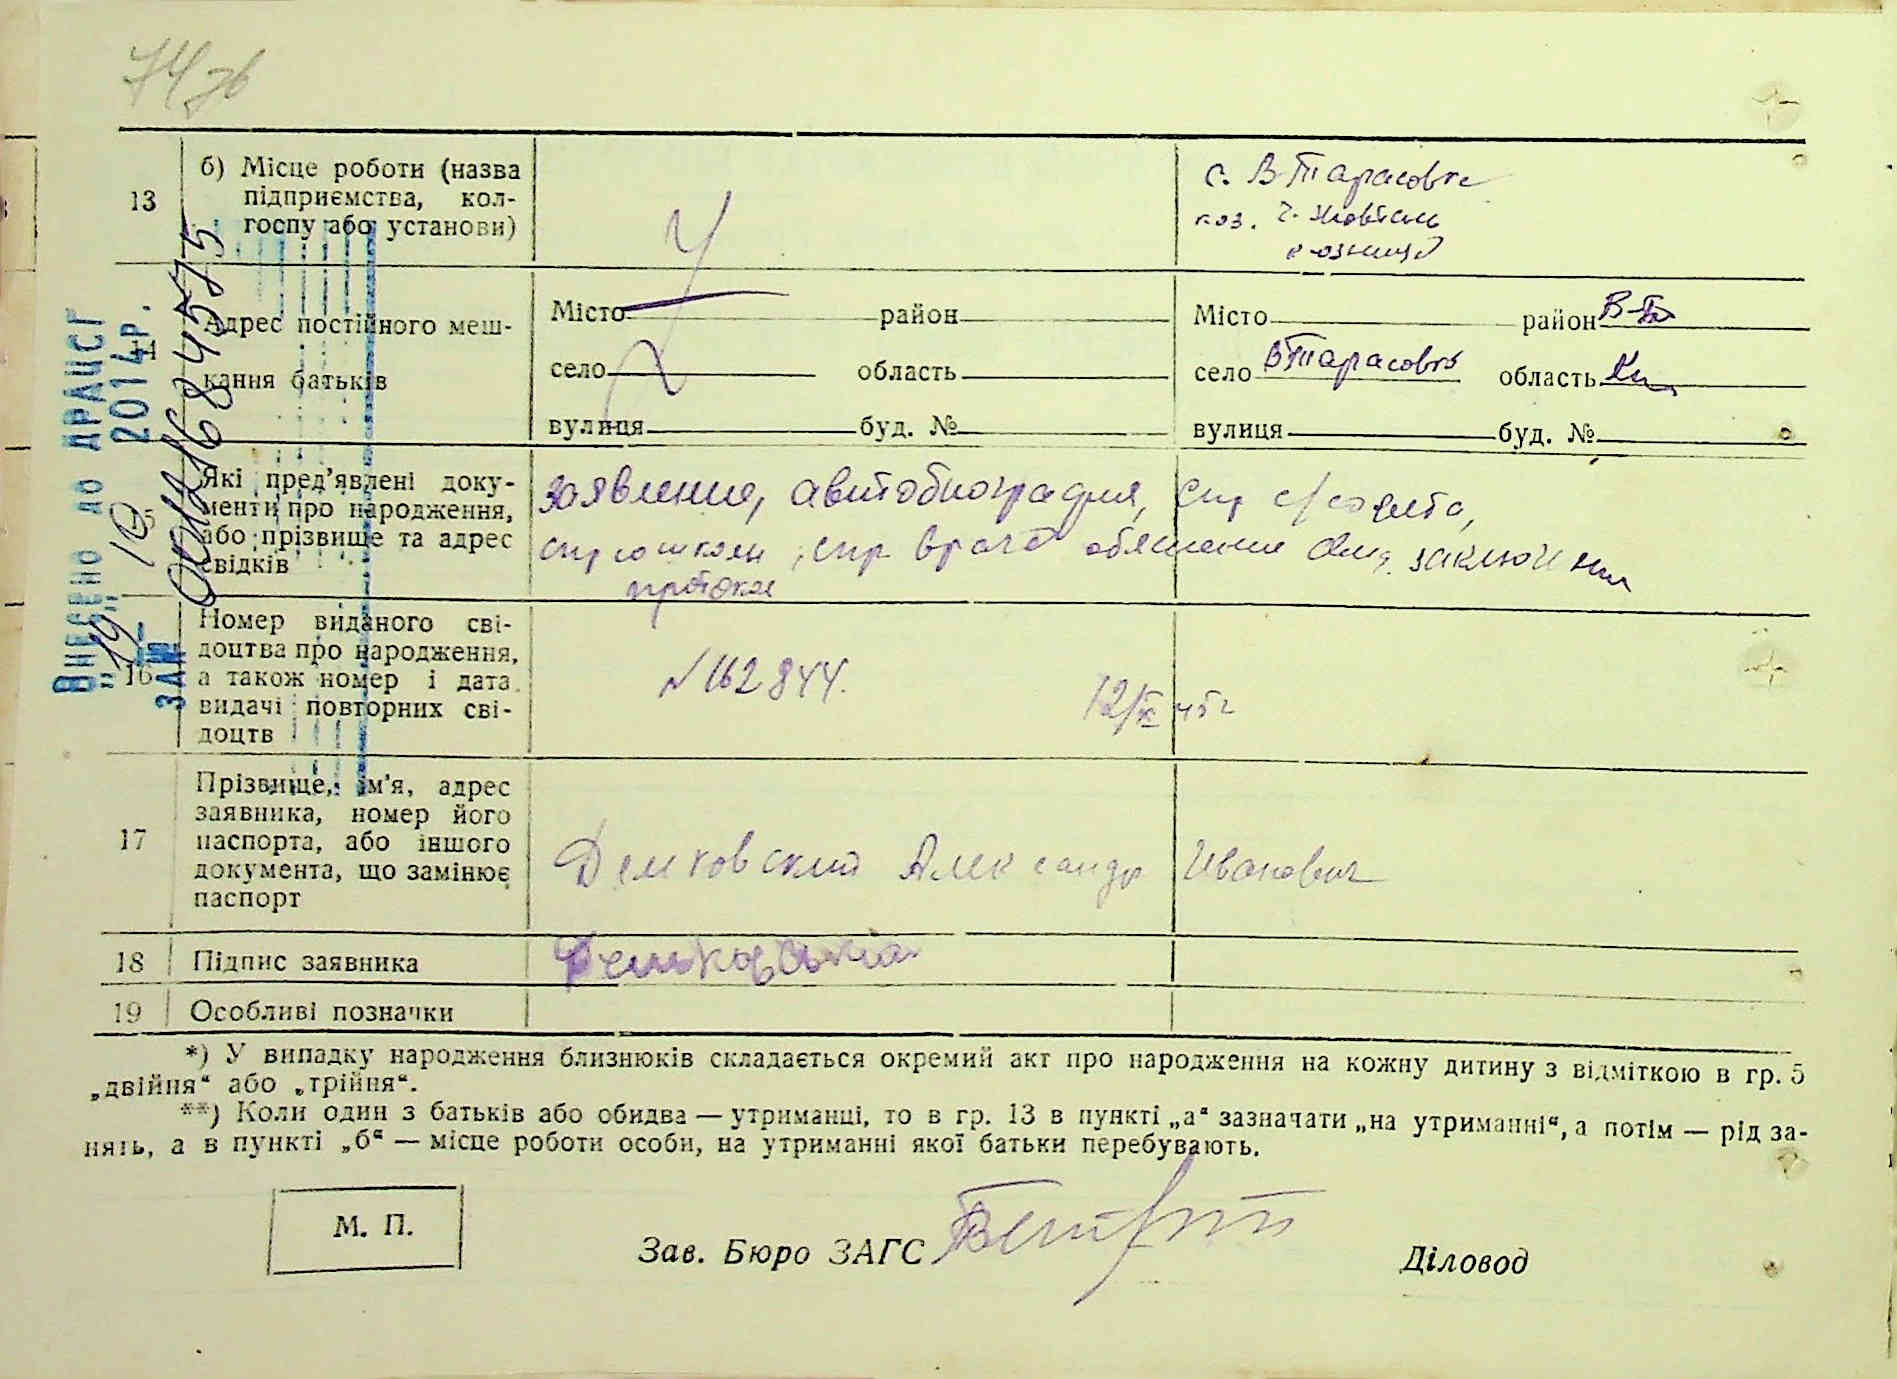 13
б) Місце роботи (назва
підприємства, кол-
госпу або установи)
с. В-Тарасовка
14
Адрес постійного меш-
кання батьків
Місто район
село область
вулиця буд. №
Місто район
село ВТарасовка область
вулиця буд. №
15
Які пред’явлені доку-
менти про народження,
або прізвище та адрес
свідків
заявление, автобиография, спр с/совета,
спр врача заключения
протокол
16
Номер виданого сві-
доцтва про народження,
а також номер і дата
видачі повторних сві-
доцтв
№162844.
17
Прізвище, ім’я, адрес
заявника, номер його
паспорта, або іншого
документа, що замінює
паспорт
Демковский Александр Иванович
18 Підпис заявника
19 Особливі позначки
*) У випадку народження близнюків складається окремий акт про народження на кожну дитину з відміткою в гр. 5
„двійня“ або „трійня“.
**) Коли один з батьків або обидва — утриманці, то в гр. 13 в пункті „а“ зазначати „на утриманні“, а потім — рід за-
нять, а в пункті „б“ — місце роботи особи, на утриманні якої батьки перебувають.
М. П.
Зав. Бюро ЗАГС
Діловод
Внесено до ДРАЦСГ
"19" 10 2014р.
ЗА №